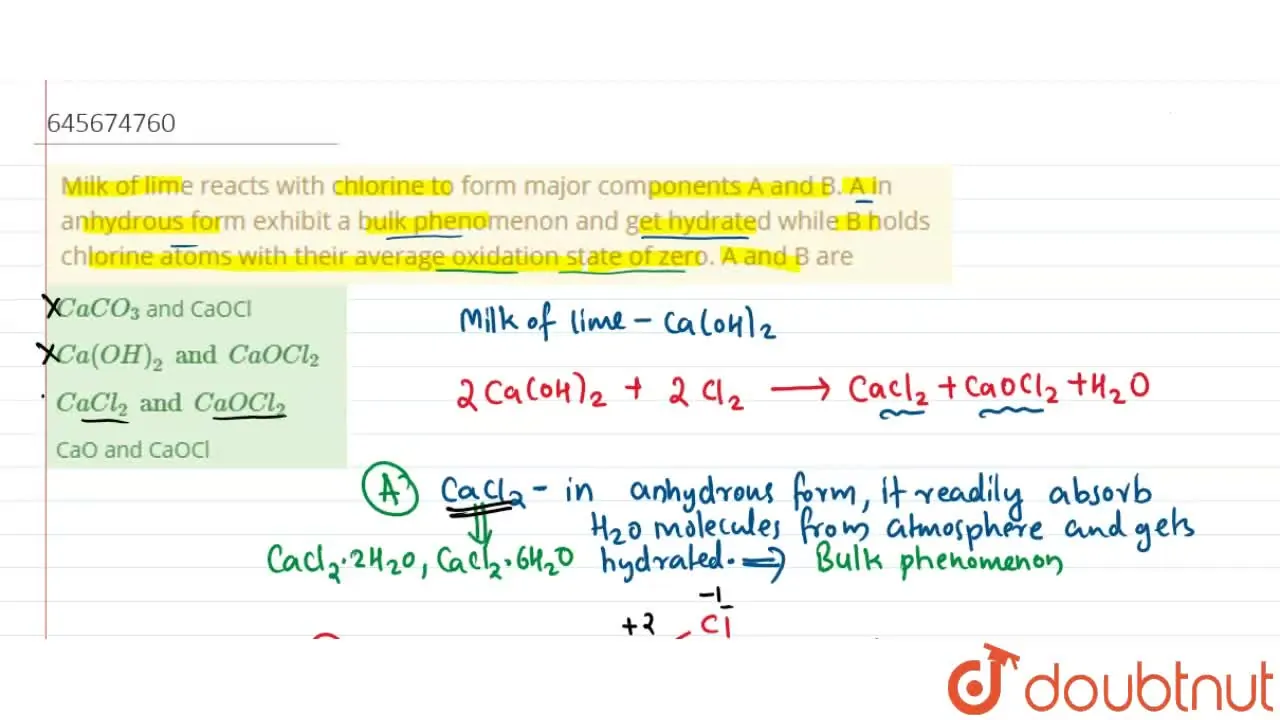 645674760
Milk of lime reacts with chlorine to form major components A and B. A in
anhydrous form exhibit a bulk phenomenon and get hydrated while B holds
chlorine atoms with their average oxidation state of zero. A and B are
CaCO₃ and CaOCl
Ca(OH)₂ and CaOCl₂
CaCl₂ and CaOCl₂
CaO and CaOCl
Milk of lime – Ca(OH)₂
2Ca(OH)₂ + 2Cl₂ → CaCl₂ + CaOCl₂ + H₂O
A) CaCl₂ – in anhydrous form, it readily absorb
H₂O molecules from atmosphere and gets
CaCl₂·2H₂O, CaCl₂·6H₂O hydrated. ⇒ Bulk phenomenon
-1
+2 Cl
doubtnut